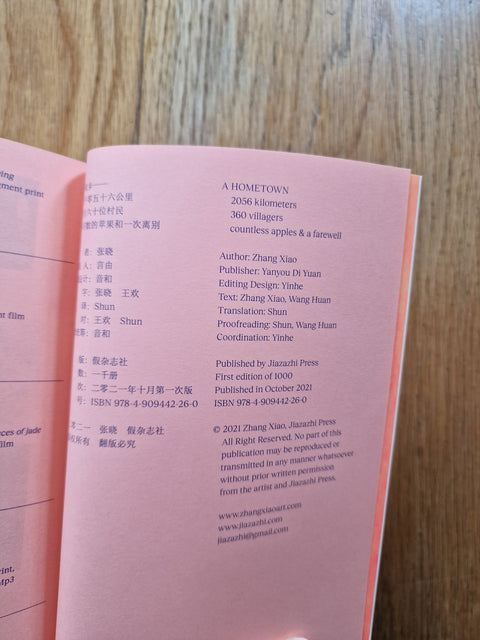 print
film
of jade
film
Mp3
零五十六公里
六十位村民
数的苹果和一次离别
者: 张晓
人: 言由
设计: 音和
字: 张晓 王欢
译: Shun
对: 王欢 Shun
统筹: 音和
版: 假杂志社
数: 一千册
次: 二零二一年十月第一次版
号: ISBN 978-4-909442-26-0
零二一 张晓 假杂志社
权所有 翻版必究
A HOMETOWN
2056 kilometers
360 villagers
countless apples & a farewell
Author: Zhang Xiao
Publisher: Yanyou Di Yuan
Editing Design: Yinhe
Text: Zhang Xiao, Wang Huan
Translation: Shun
Proofreading: Shun, Wang Huan
Coordination: Yinhe
Published by Jiazazhi Press
First edition of 1000
Published in October 2021
ISBN 978-4-909442-26-0
© 2021 Zhang Xiao, Jiazazhi Press
All Right Reserved. No part of this
publication may be reproduced or
transmitted in any manner whatsoever
without prior written permission
from the artist and Jiazazhi Press.
www.zhangxiaoart.com
www.jiazazhi.com
jiazazhi@gmail.com